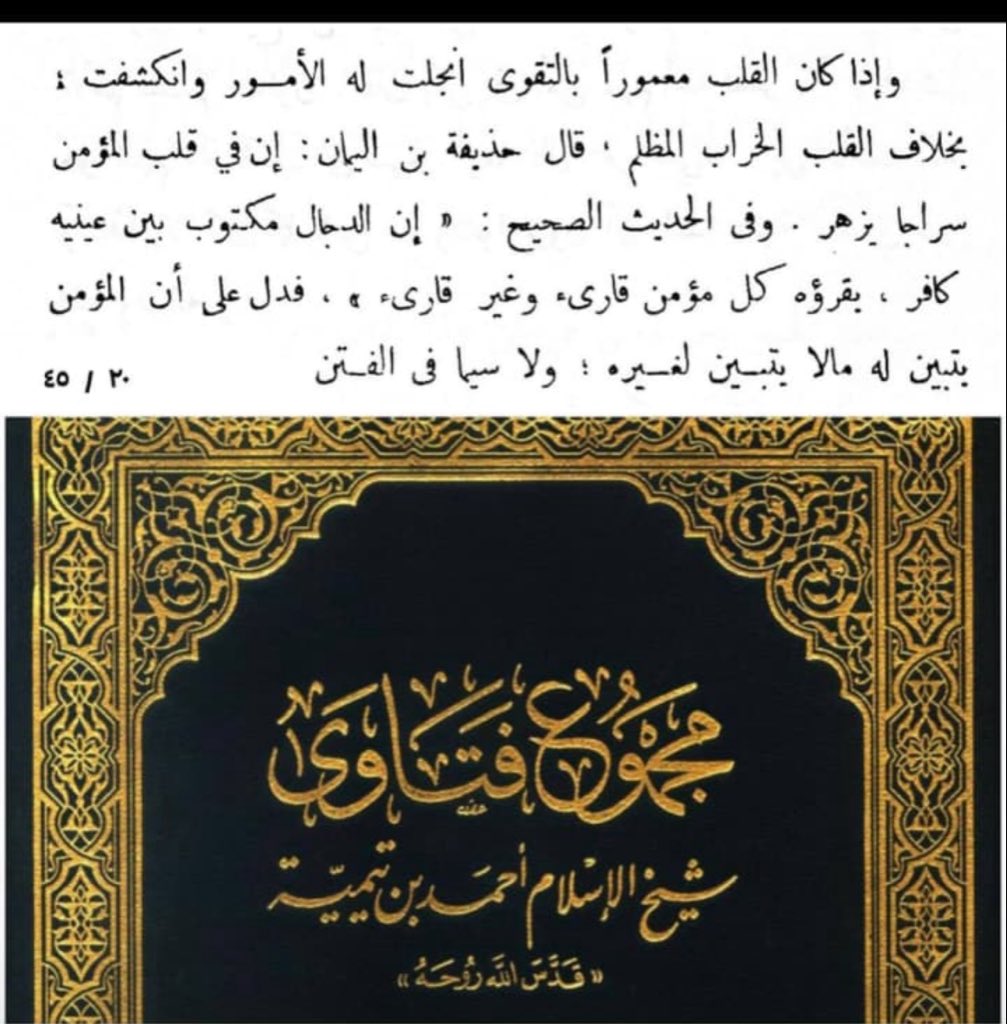 وإذا كان القلب معموراً بالتقوى انجلت له الأمــور وانكشفت ؛
بخلاف القلب الخراب المظلم ، قال حذيفة بن اليمان : إن في قلب المؤمن
سراجا يزهر . وفى الحديث الصحيح : « إن الدجال مكتوب بين عينيه
كافر ، يقرؤه كل مؤمن قارىء وغير قارىء » ، فدل على أن المؤمن
يتبين له مالا يتبــين لغــيره ؛ ولا سيما فى الفــتن
٢٠ / ٤٥
مجموع فتاوى
شيخ الإسلام أحمد بن تيميّة
« قَدَّسَ اللَّه رُوُحَهُ »